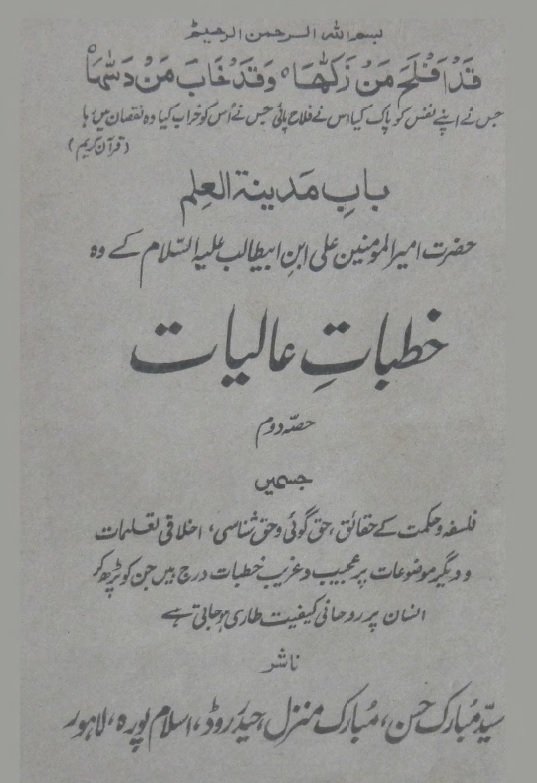 بسم الله الرحمن الرحیم
قَدْ اَفْلَحَ مَنْ زَكّٰىهَا ۙ وَقَدْ خَابَ مَنْ دَسّٰىهَا ۙ
جس نے اپنے نفس کو پاک کیا اس نے فلاح پائی جس نے اُس کو خراب کیا وہ نقصان میں رہا
(قرآن کریم)
بابِ مَدینۃ العِلم
حضرت امیر المومنین علی ابنِ ابیطالب علیہ السّلام کے وہ
خطباتِ عالیات
حصّہ دوم
جسمیں
فلسفہ و حکمت کے حقائق، حق گوئی و حق شناسی، اخلاقی تعلیمات
و دیگر موضوعات پر عجیب و غریب خطبات درج ہیں جن کو پڑھ کر
انسان پر روحانی کیفیت طاری ہو جاتی ہے
ناشر
سیّد مُبارک حسن، مُبارک منزل، حیدر روڈ، اسلام پورہ، لاہور